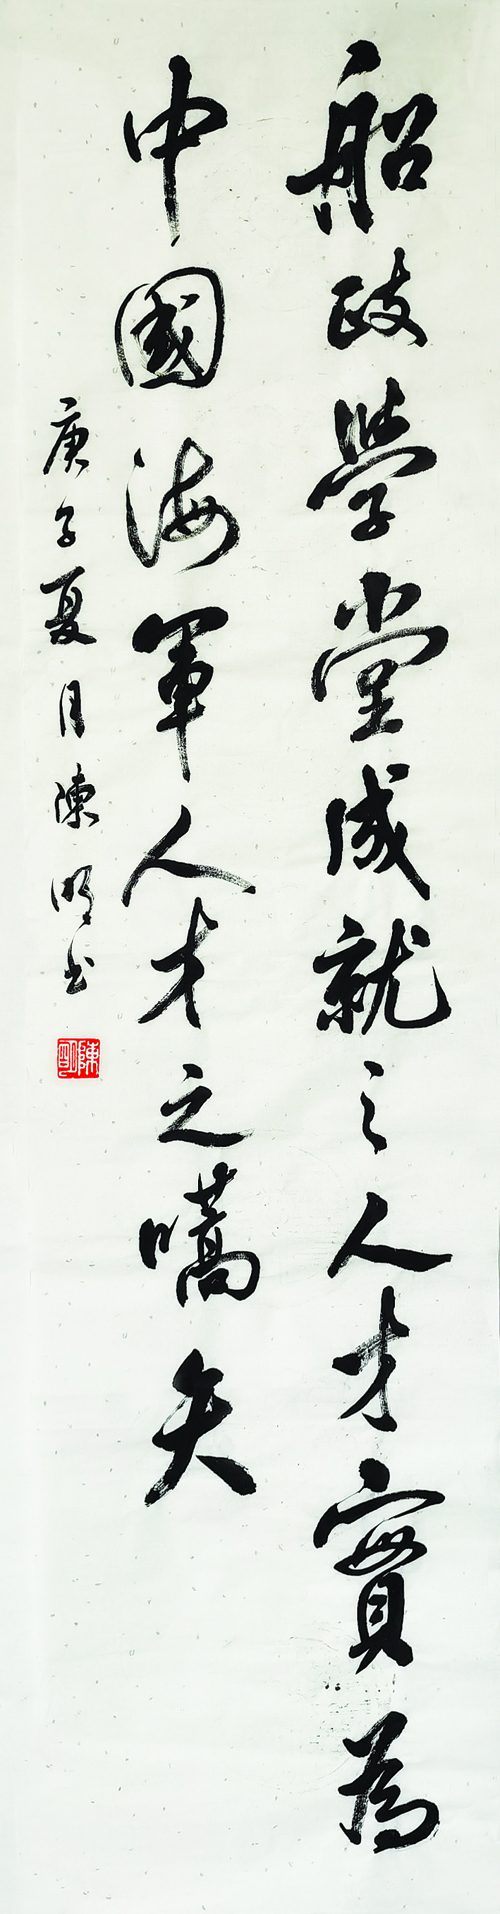 船政學堂成就之人才實為
中國海軍人才之嚆矢
庚子夏月陳明书
陳明